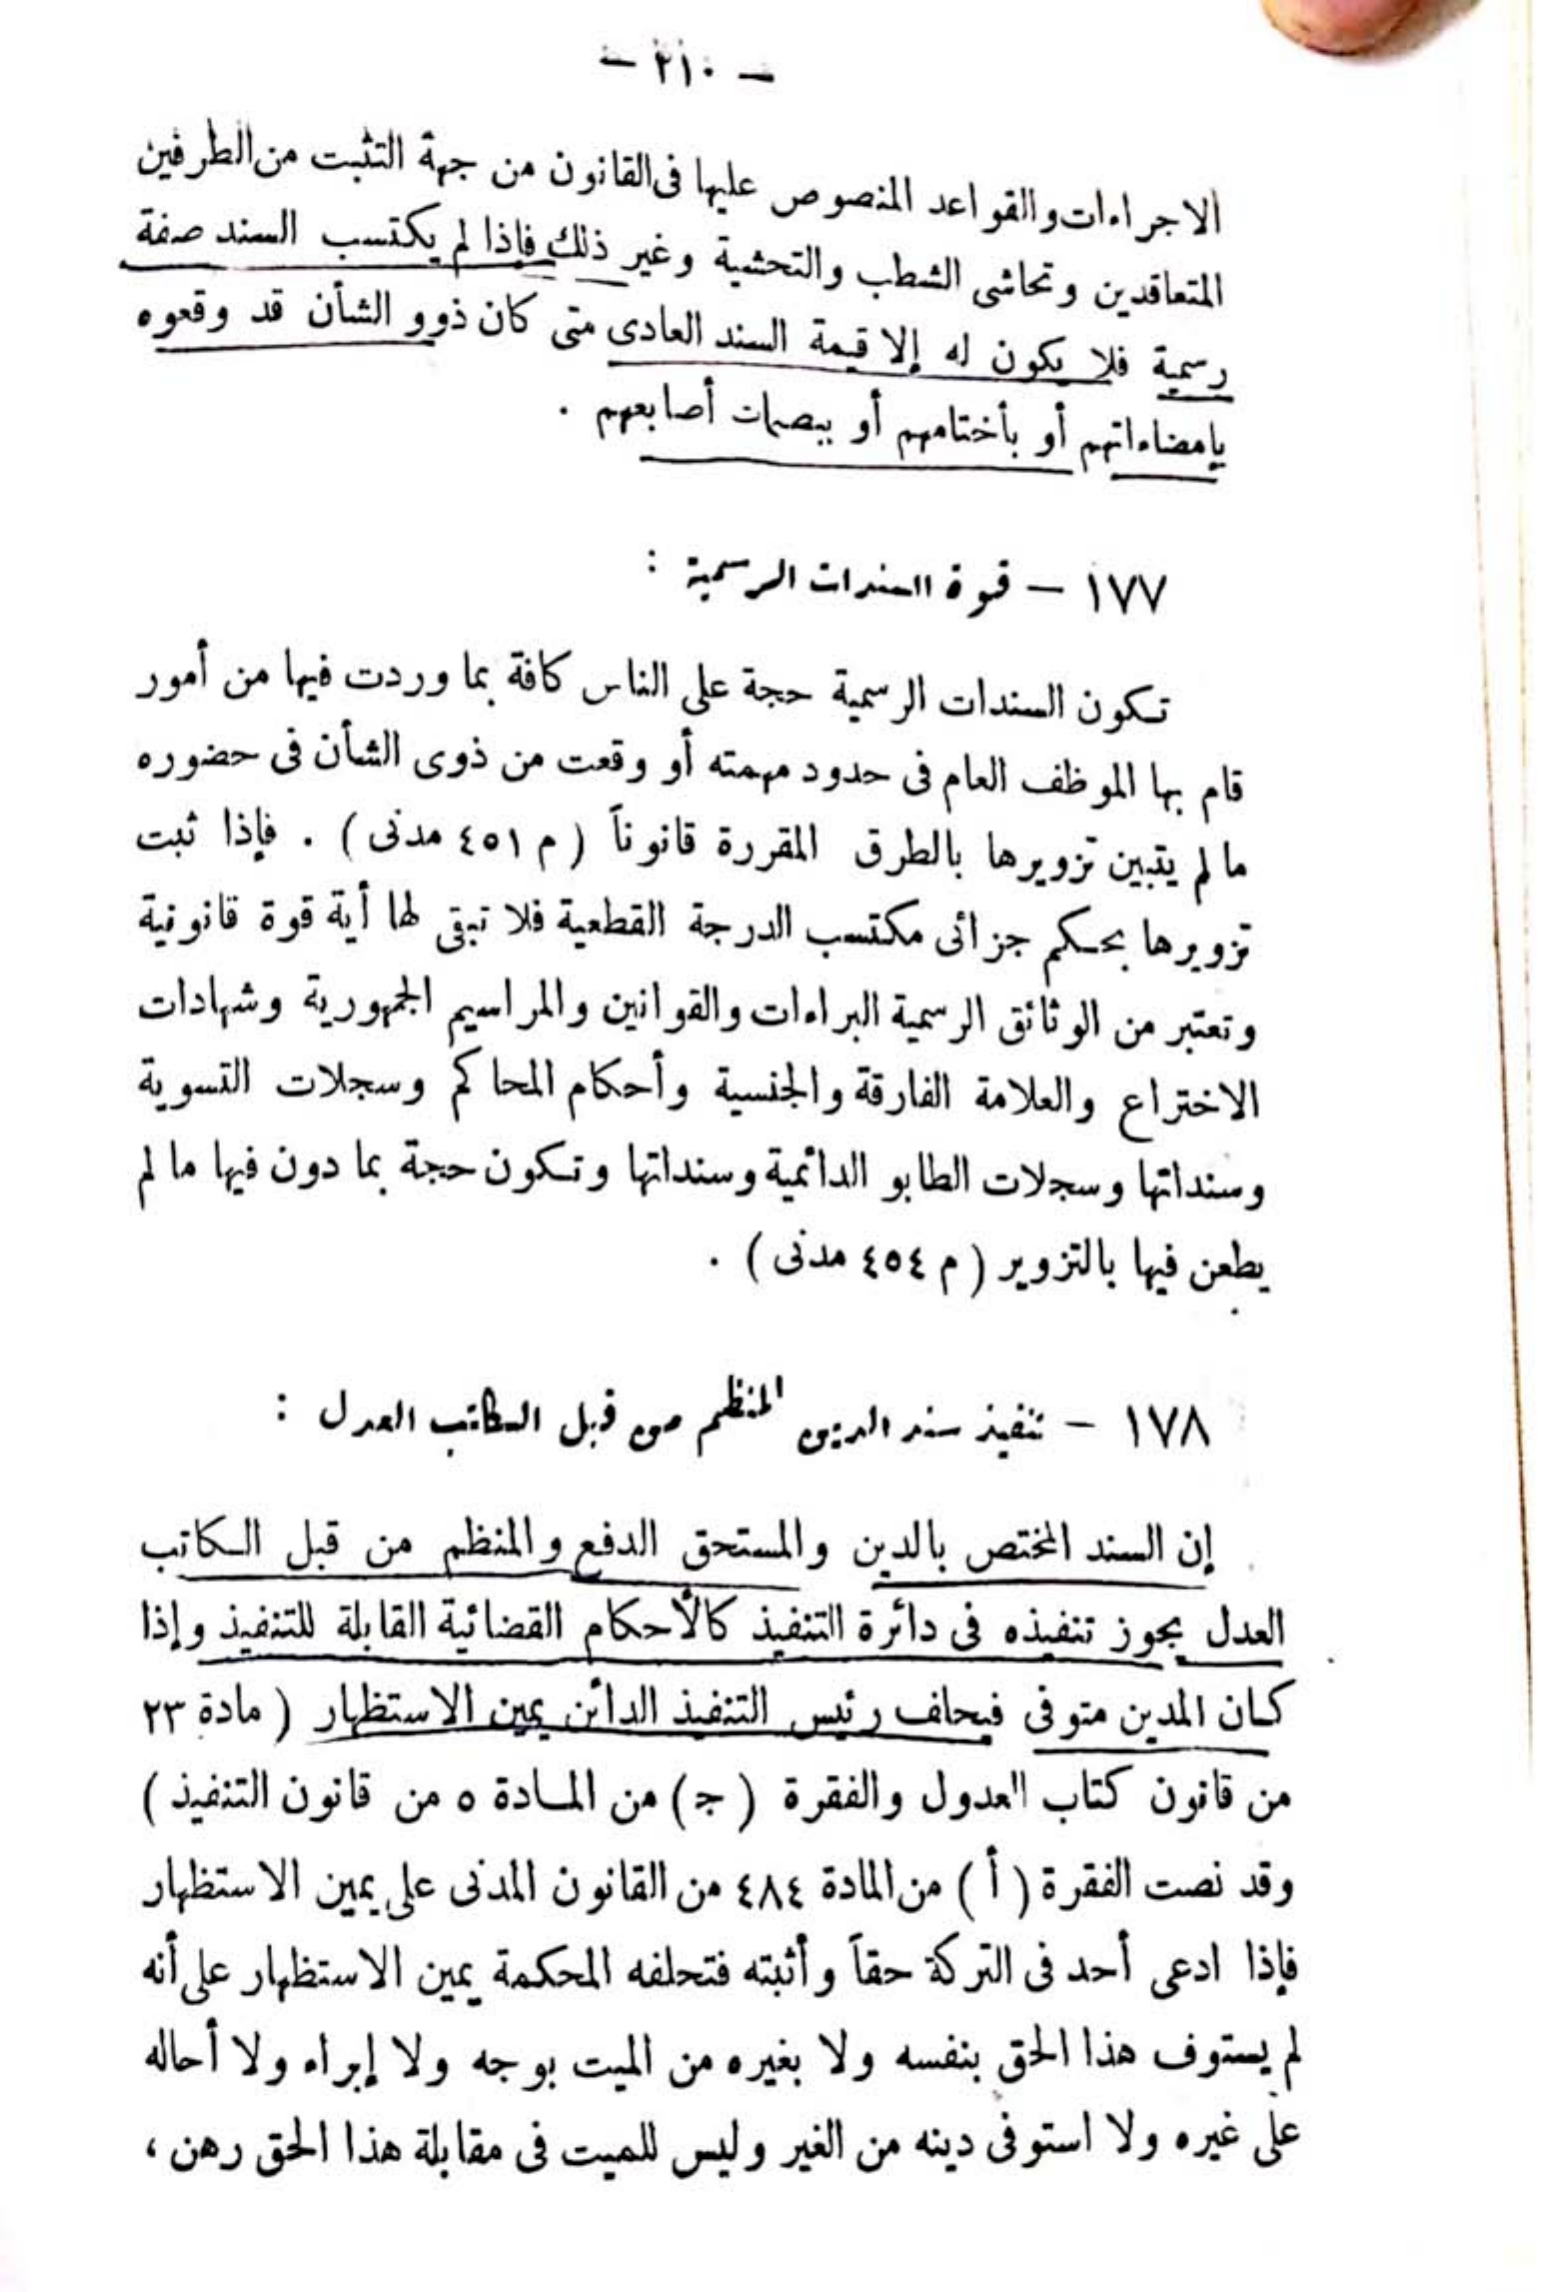 - ٢١٠ -
الاجراءات والقواعد المنصوص عليها فى القانون من جهة التثبت من الطرفين
المتعاقدين وتحاشى الشطب والتحشية وغير ذلك فإذا لم يكتسب السند صفة
رسمية فلا يكون له إلا قيمة السند العادى متى كان ذوو الشأن قد وقعوه
بإمضاءاتهم أو بأختامهم أو ببصمات أصابعهم .
١٧٧ - قوة السندات الرسمية :
تكون السندات الرسمية حجة على الناس كافة بما وردت فيها من أمور
قام بها الموظف العام فى حدود مهمته أو وقعت من ذوى الشأن فى حضوره
ما لم يتبين تزويرها بالطرق المقررة قانوناً ( م ٤٥١ مدنى ) . فإذا ثبت
تزويرها بحكم جزائى مكتسب الدرجة القطعية فلا تبقى لها أية قوة قانونية
وتعتبر من الوثائق الرسمية البراءات والقوانين والمراسيم الجمهورية وشهادات
الاختراع والعلامة الفارقة والجنسية وأحكام المحاكم وسجلات التسوية
وسنداتها وسجلات الطابو الدائمية وسنداتها وتكون حجة بما دون فيها ما لم
يطعن فيها بالتزوير ( م ٤٥٤ مدنى ) .
١٧٨ - تنفيذ سند الدين المنظم من قبل الكاتب العدل :
إن السند المختص بالدين والمستحق الدفع والمنظم من قبل الكاتب
العدل يجوز تنفيذه فى دائرة التنفيذ كالأحكام القضائية القابلة للتنفيذ وإذا
كان المدين متوفى فيحلف رئيس التنفيذ الدائن يمين الاستظهار ( مادة ٢٣
من قانون كتاب العدول والفقرة ( ج ) من المادة ٥ من قانون التنفيذ )
وقد نصت الفقرة ( أ ) من المادة ٤٨٤ من القانون المدنى على يمين الاستظهار
فإذا ادعى أحد فى التركة حقاً وأثبته فتحلفه المحكمة يمين الاستظهار على أنه
لم يستوف هذا الحق بنفسه ولا بغيره من الميت بوجه ولا إبراء ولا أحاله
على غيره ولا استوفى دينه من الغير وليس للميت فى مقابلة هذا الحق رهن ،